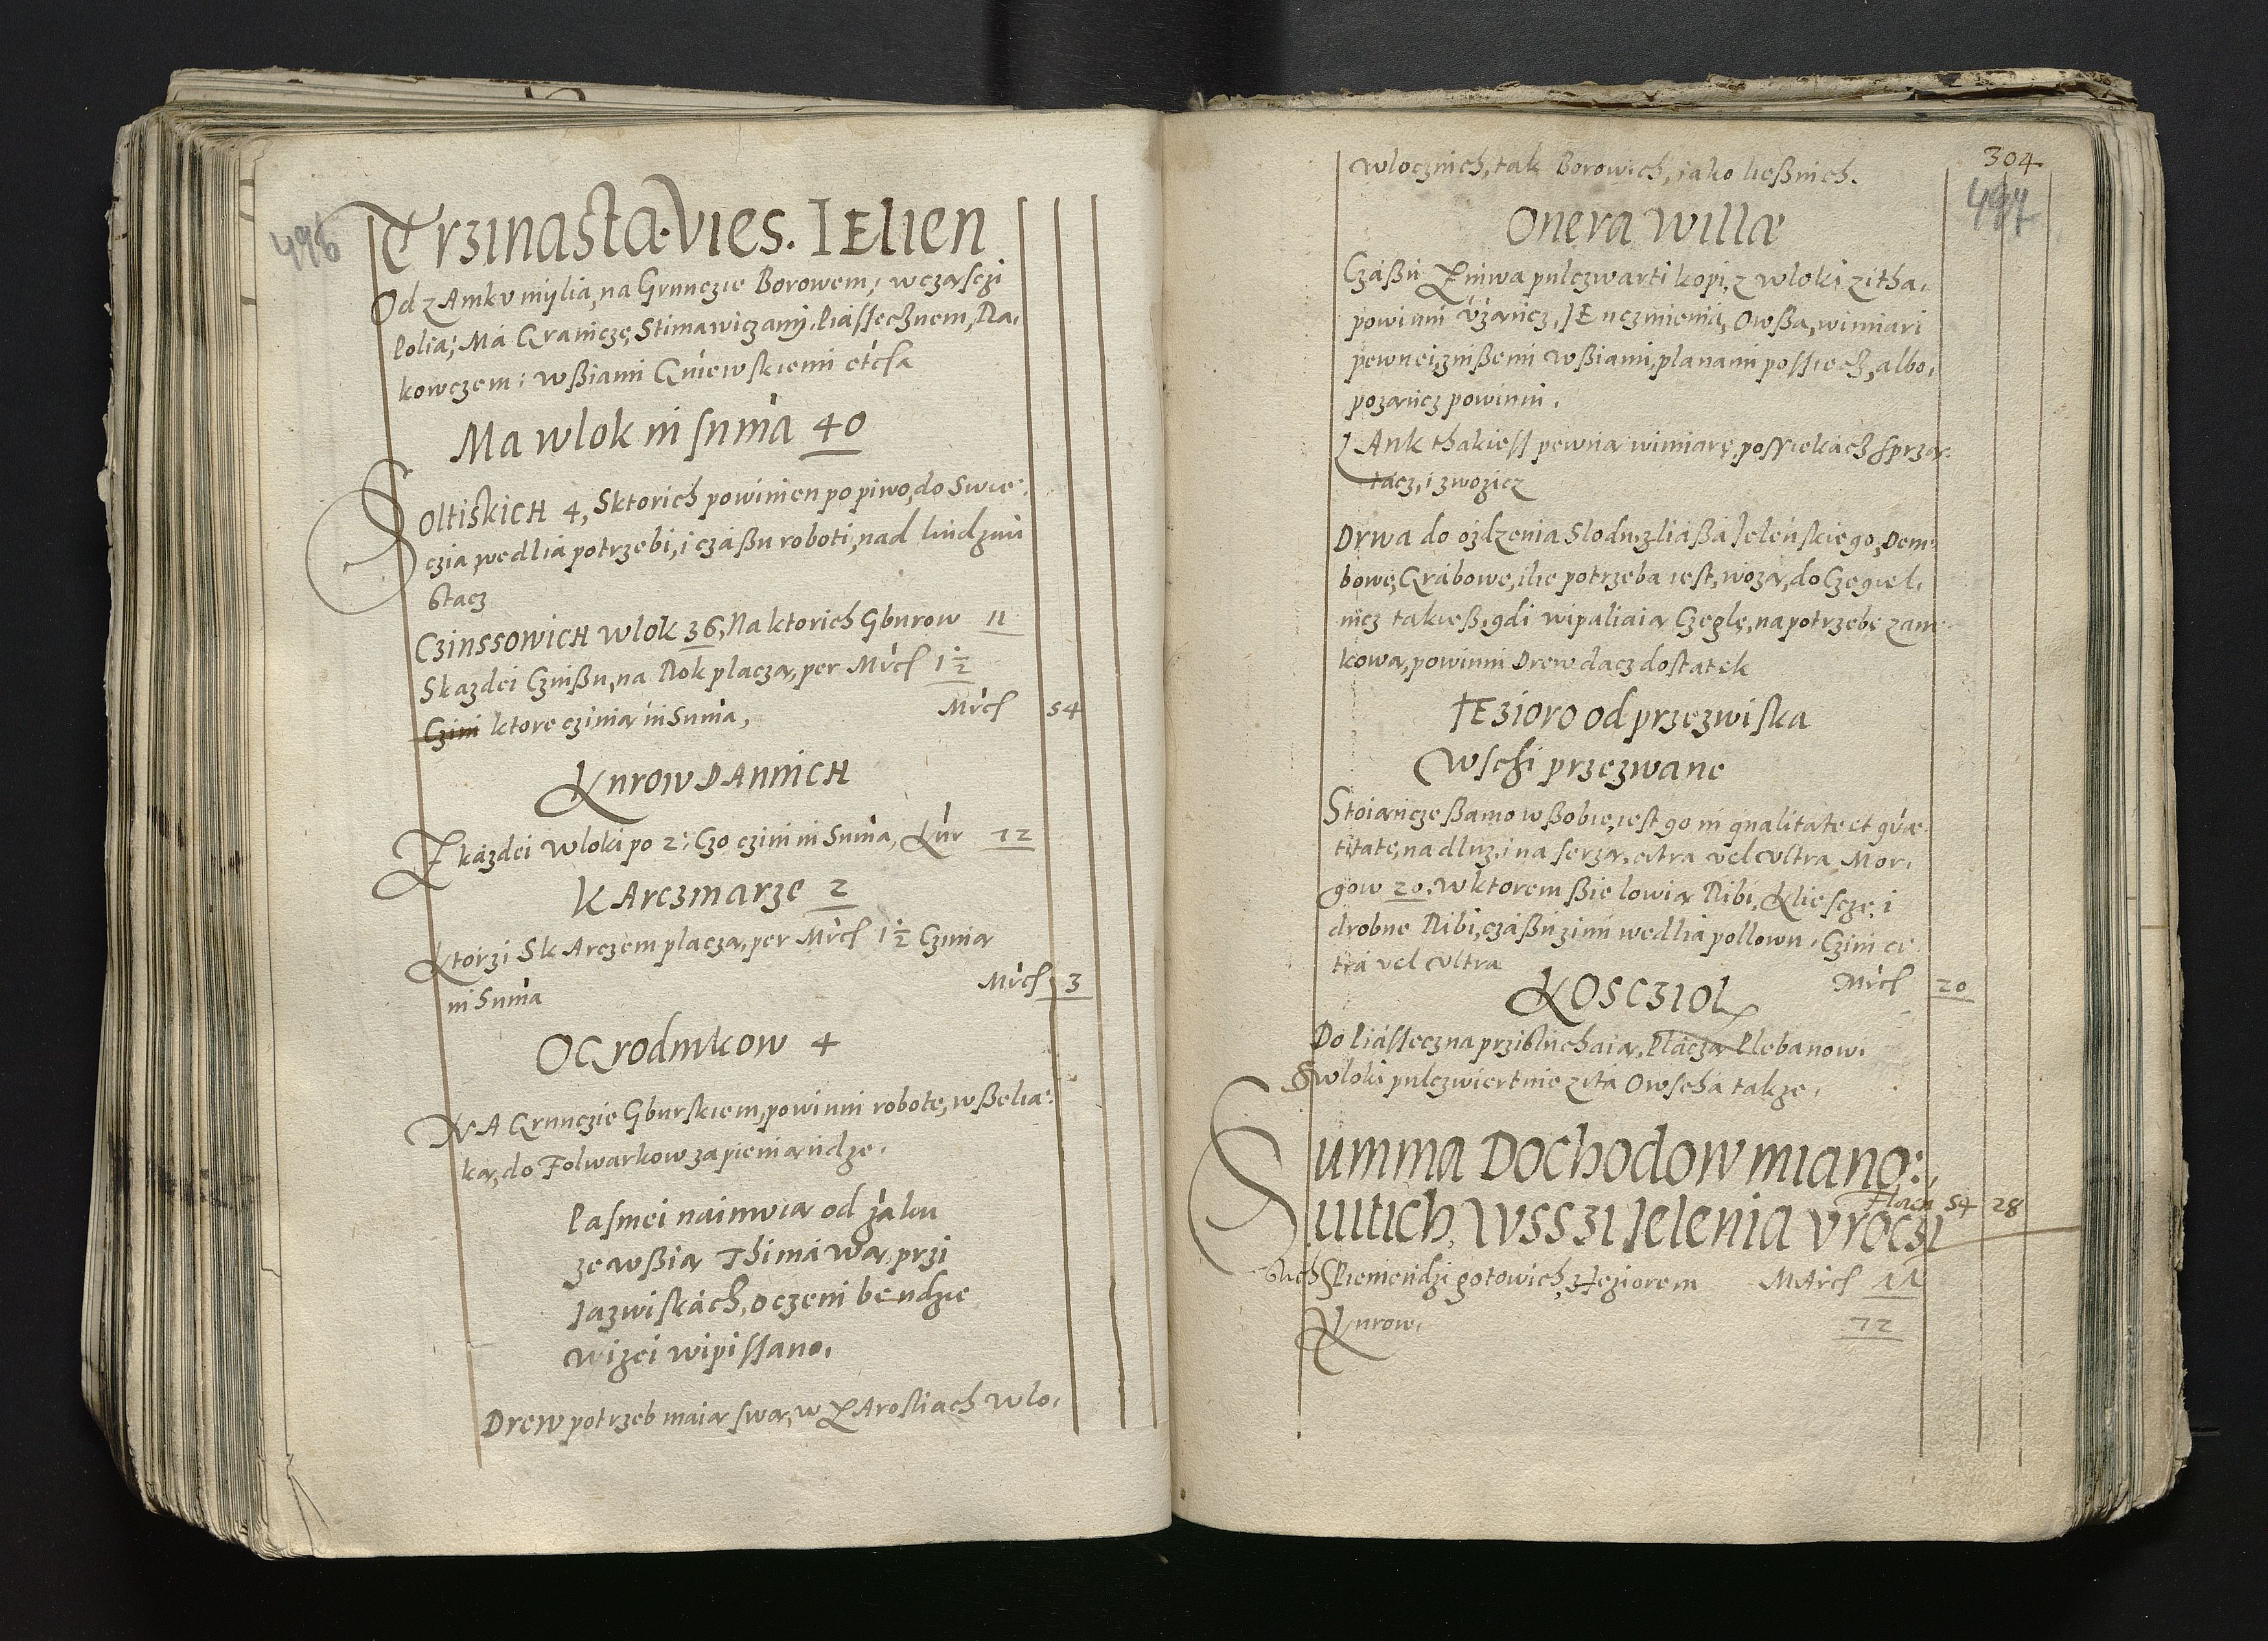 496
Trzinasta. Vies. IElien
Od zAmku mylia, na Grunczie Borowem, w czarsczi
Polia, Ma Graniczę, Stimawiczami, Piassechznem, Ra,
kowczem, w ßiami Gniewskiemi etc̃sA
Ma wlok in suma 40
Soltiskich 4, Sktorich powinien po piwo, do Swie,
czia, wedlia potrzebi, i czaßu roboti, nad ludzmi
stacz
CzinssowicH wlok 36, Na ktorich Gburow 11
Skazdei Czinßu, na Rok placza, per Mrcſ 1½
Czini ktore czinia in Suma, Mrcſ 54
KurowDAnnicH
Z kazdei wloki po 2, Czo czini in Suma, Kur 72
KArczmarze 2
Ktorzi SkArczem placza, per Mrcſ 1½ Czinia
in Suma Mrcſ 3
OGrodnikow 4
NA Grunczie Gburskiem, powinni robotę, w ßelia,
ka, do Folwarkow za pieniandze.
Pasniei naimuia od zaku
ze wßia Thimawa, przi
Jazwiskach, o czem bendzie
wizei wipissano,
Drew potrzeb maia swa, w ZArosliach wlo,
304
497
wlocznich, tak Borowich, iako ließnich.
Onera willæ
Czaßu Zniwa pulczwarti kopi, z wloki zitha,
powinni Użancz, JEnczmienia, Owßa, wimiari
pewnei, z inßemi w ßiami, planami possiecz, albo,
pozancz powinni.
ŁAnk thakiess pewna wimiarę, possiekacz sprza
tacz, i zwozicz
Drwa do ozdzenia Slodu, z liaßa Jelenskiego, Dem
bowe, Grabowe, ilie potrzeba iest, woza, do Czegiel,
nicz takieß, gdi wipaliaia Czeglę, na potrzebę zam
kowa, powinni Drew dacz dostatek
JEzioro od przezwiska
wschi przezwane
Stoiancze ßamo w ßobie, iest go in qualitate et quæ
titate, na dluz, i na serza, citra vel vltra Mor,
gow 20, w ktorem ßie lowia Ribi, Klieszcze, i
drobne Ribi, czaßu zimi wedlia pollowu, Czini ci
tra vel vltra Mrcſ 20
KOSCZIOL
Do Piasseczna przisluchaia, Placza Plebanowi
S wloki pulczwiertnie zita Owscha takze,
Summa Dochodow miano,
uitich, WSSZI Jelenia vroczi Floren 54 28
stich Pieniendzi gotowich z Jeziorem MArcſ
Kurow. 72